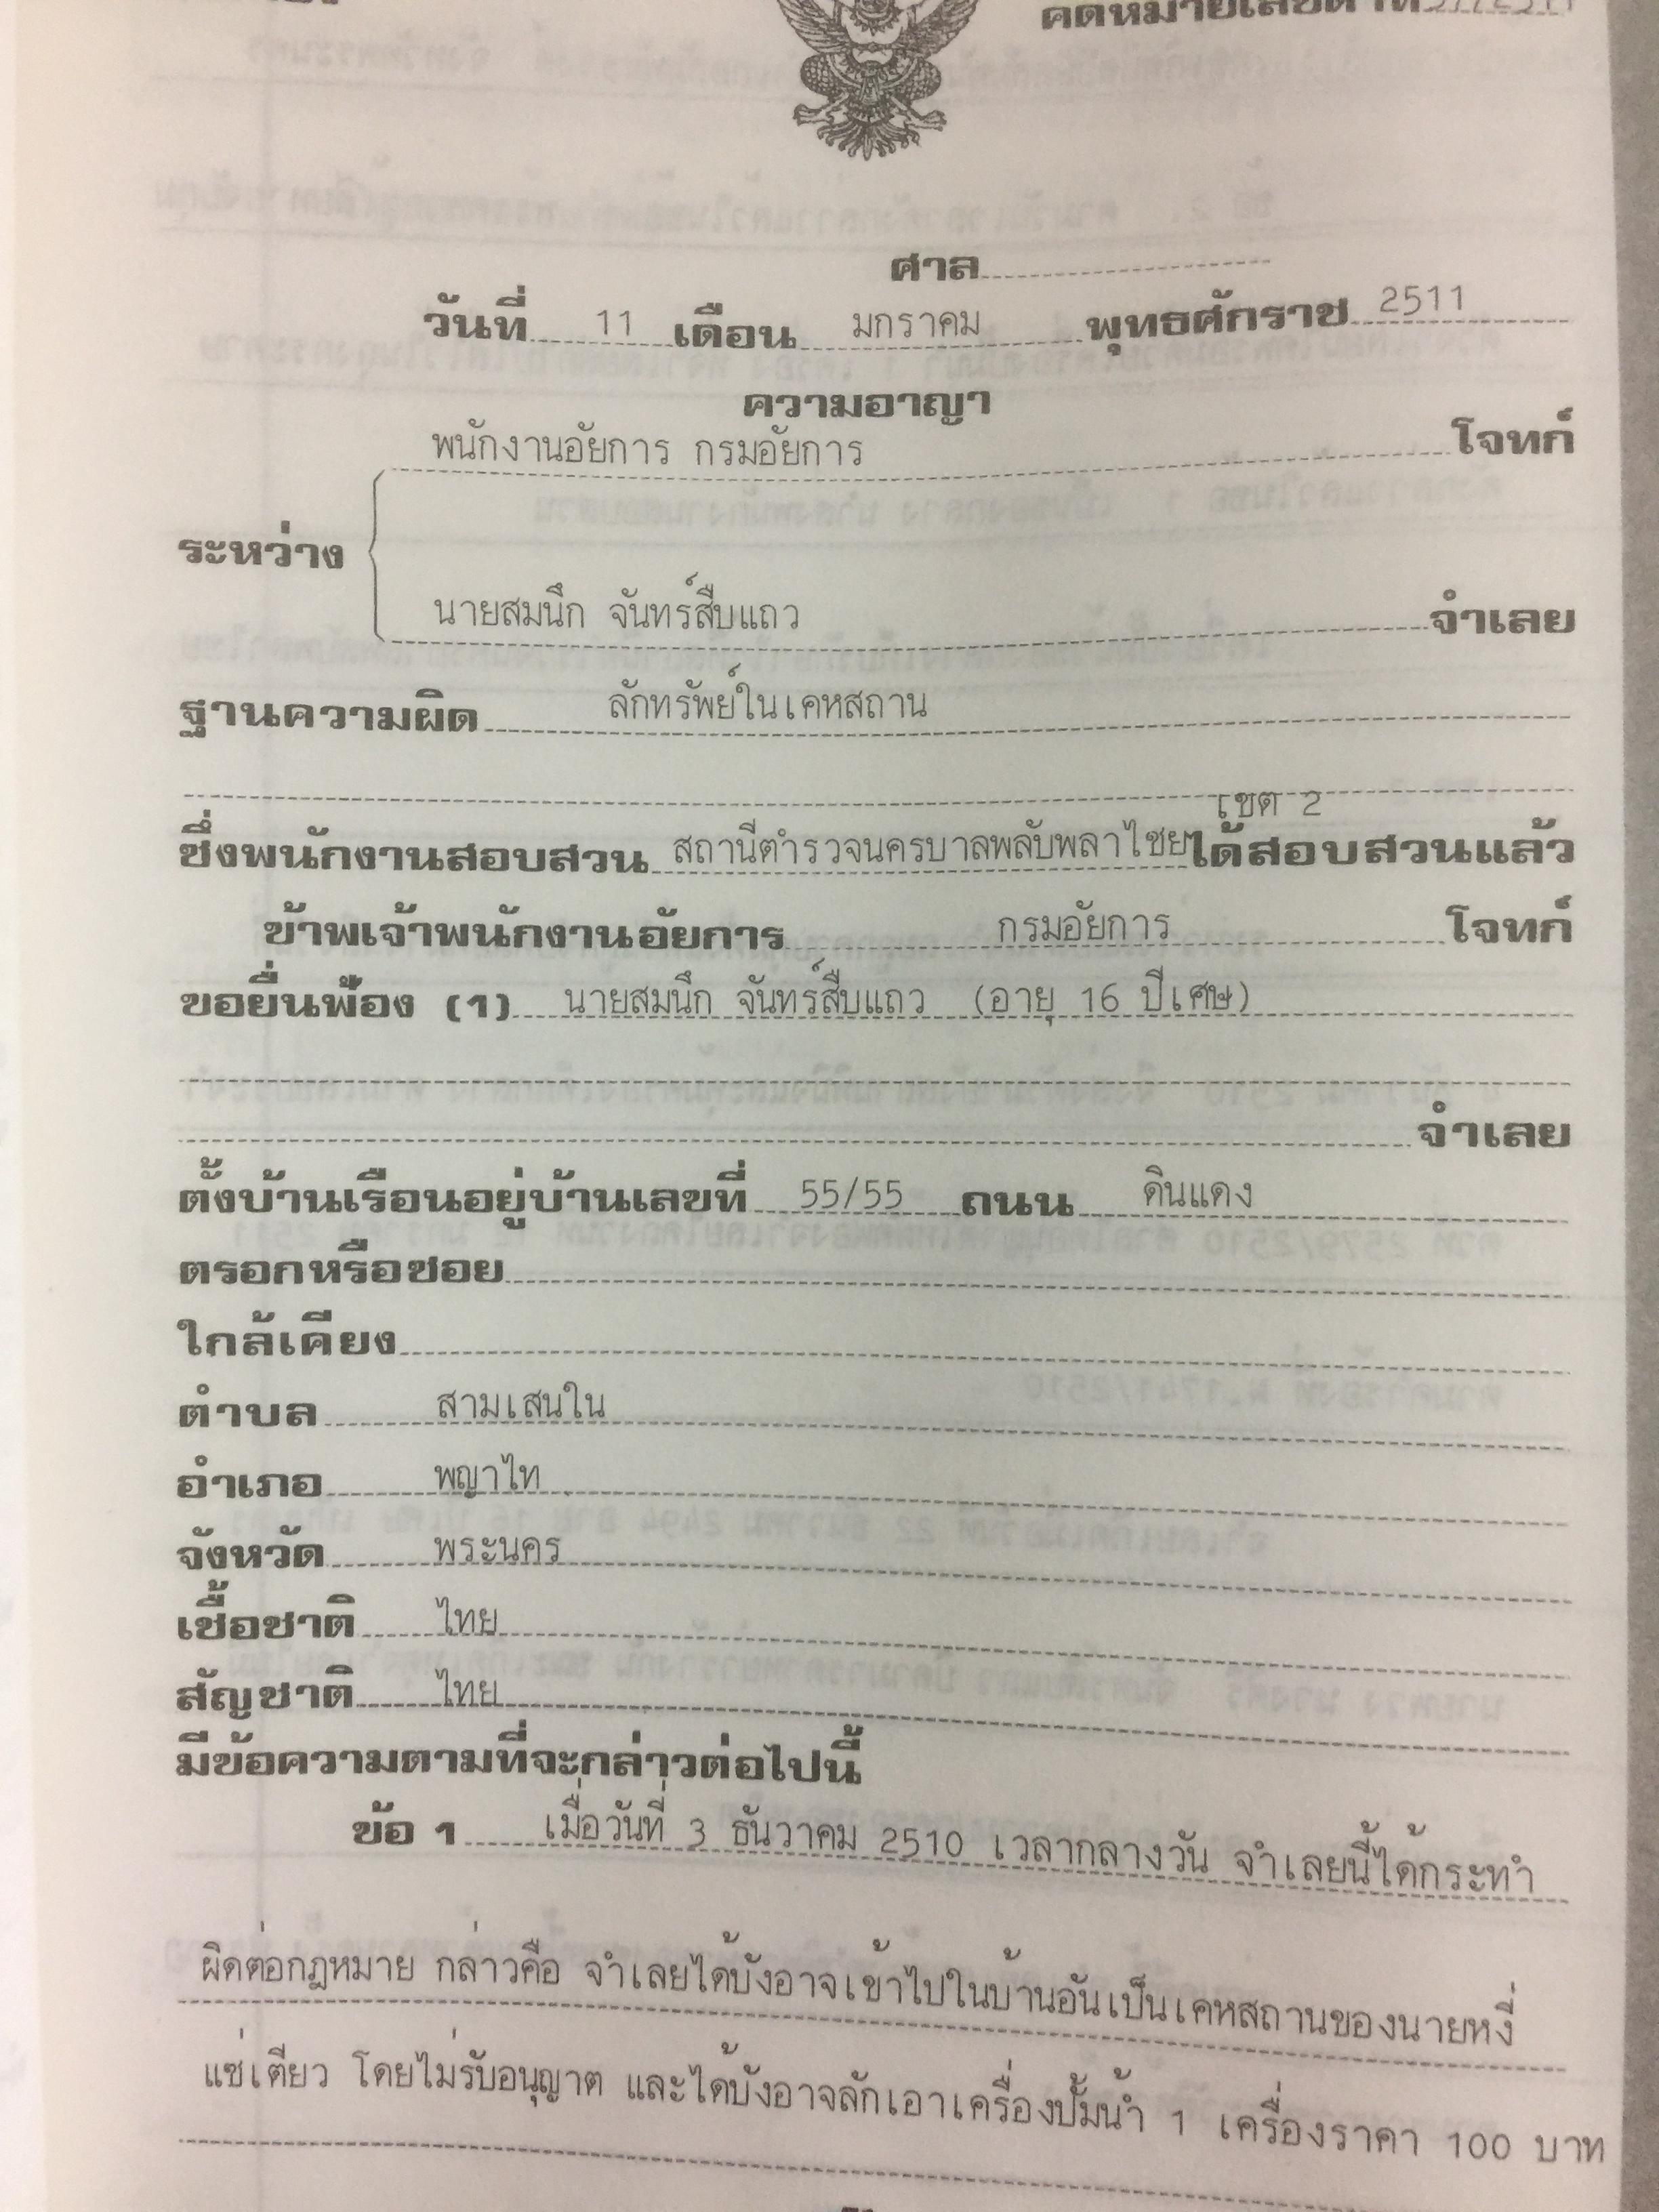 คดีหมายเลขดำที่
ศาล
วันที่ 11 เดือน มกราคม พุทธศักราช 2511
ความอาญา
พนักงานอัยการ กรมอัยการ โจทก์
ระหว่าง
นายสมนึก จันทร์สืบแถว จำเลย
ฐานความผิด ลักทรัพย์ในเคหสถาน
เขต 2
ซึ่งพนักงานสอบสวน สถานีตำรวจนครบาลพลับพลาไชย ได้สอบสวนแล้ว
ข้าพเจ้าพนักงานอัยการ กรมอัยการ โจทก์
ขอยื่นฟ้อง (1) นายสมนึก จันทร์สืบแถว (อายุ 16 ปีเศษ)
จำเลย
ตั้งบ้านเรือนอยู่บ้านเลขที่ 55/55 ถนน ดินแดง
ตรอกหรือซอย
ใกล้เคียง
ตำบล สามเสนใน
อำเภอ พญาไท
จังหวัด พระนคร
เชื้อชาติ ไทย
สัญชาติ ไทย
มีข้อความตามที่จะกล่าวต่อไปนี้
ข้อ 1 เมื่อวันที่ 3 ธันวาคม 2510 เวลากลางวัน จำเลยนี้ได้กระทำ
ผิดต่อกฎหมาย กล่าวคือ จำเลยได้บังอาจเข้าไปในบ้านอันเป็นเคหสถานของนายหงี่
แซ่เตียว โดยไม่รับอนุญาต และได้บังอาจลักเอาเครื่องปั้มน้ำ 1 เครื่องราคา 100 บาท